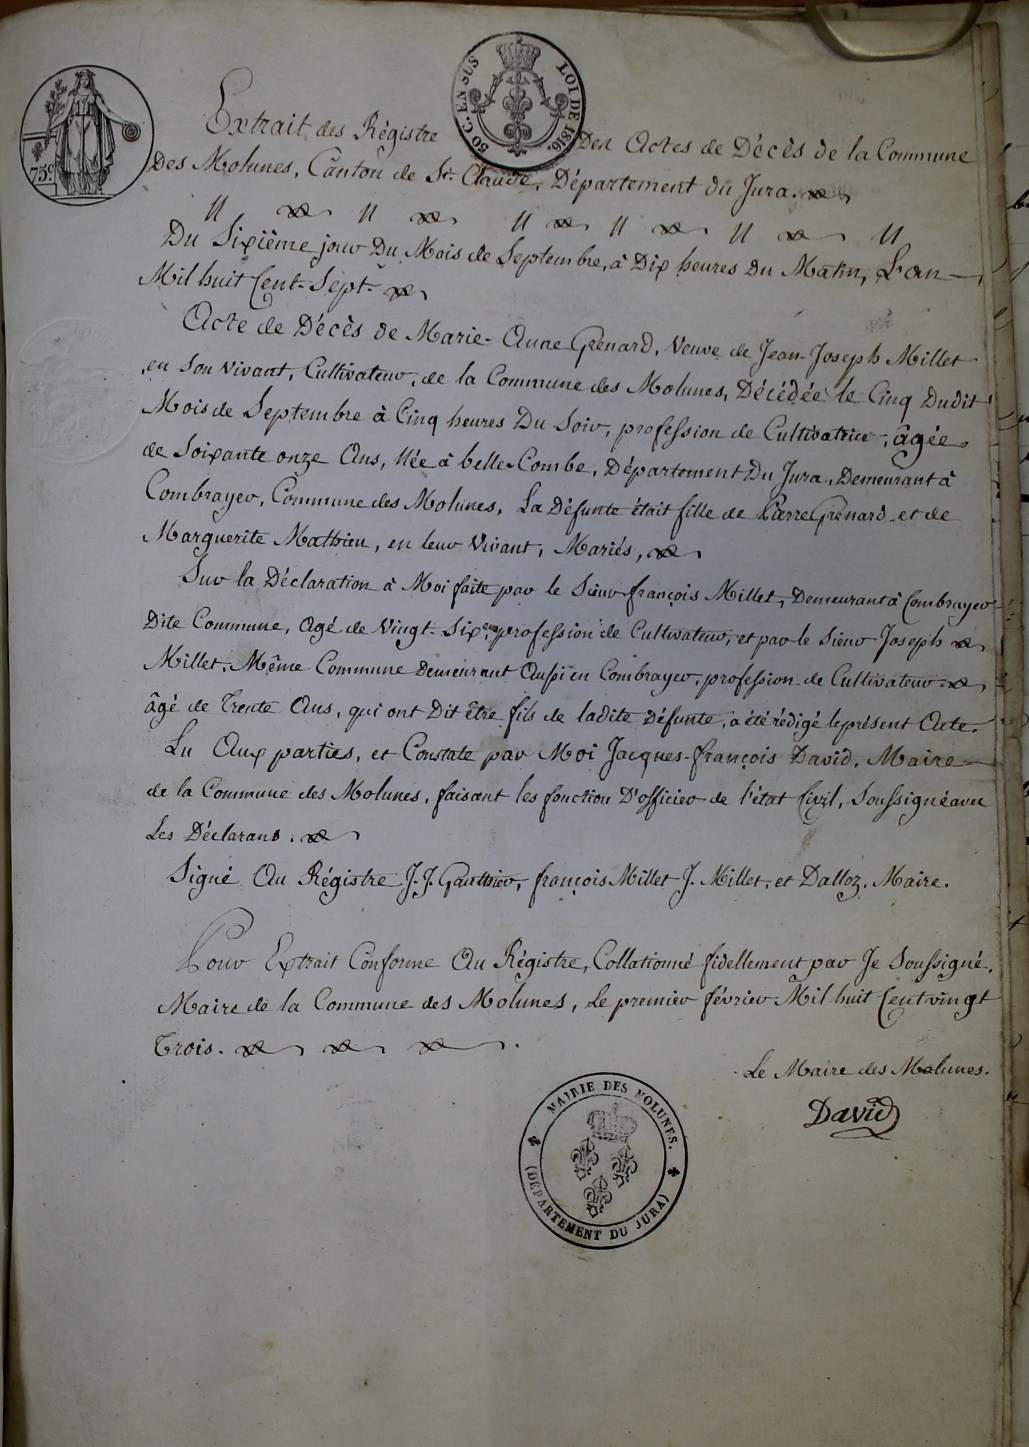 75c
50 C. EN SUS
LOI DE 1816.
Extrait des Régistre Des Actes de Décès de la Commune
Des Molunes, Canton de St. Claude, Département du Jura.
Du Sixième jour Du Mois de Septembre, à Dix heures Du Matin, L'an
Mil huit Cent-Sept
Acte de Décès de Marie-Anne Grenard, Veuve de Jean-Joseph Millet
en Son Vivant, Cultivateur, de la Commune des Molunes, Décédée le Cinq Dudit
Mois de Septembre à Cinq heures Du Soir, profession de Cultivatrice, âgée
de Soixante onze Ans, Née à belle-Combe, Département Du Jura, Demeurant à
Combrayer, Commune des Molunes, La Défunte était fille de Pierre Grenard et de
Marguerite Mathieu, en leur Vivant, Mariés,
Sur la Déclaration à Moi faite par le Sieur françois Millet, Demeurant à Combrayer
Dite Commune, Agé de Vingt-Six ans, profession de Cultivateur, et par le Sieur Joseph
Millet, Même Commune Demeurant Aussi en Combrayer, profession de Cultivateur
âgé de Trente Ans, qui ont Dit être fils de ladite Défunte, a été rédigé le présent Acte.
Lu Aux parties, et Constate par Moi Jacques-françois David, Maire
de la Commune des Molunes, faisant les fonction D'officier de l'état Civil, Soussigné avec
Les Déclarans.
Signé Au Régistre J. J. Gauthier, françois Millet J. Millet, et Dalloz, Maire.
Pour Extrait Conforme Au Régistre, Collationné fidellement par Je Soussigné,
Maire de la Commune des Molunes, Le premier février Mil huit Cent vingt
Trois.
Le Maire des Molunes.
David
MAIRIE DES MOLUNES.
(DÉPARTEMENT DU JURA)